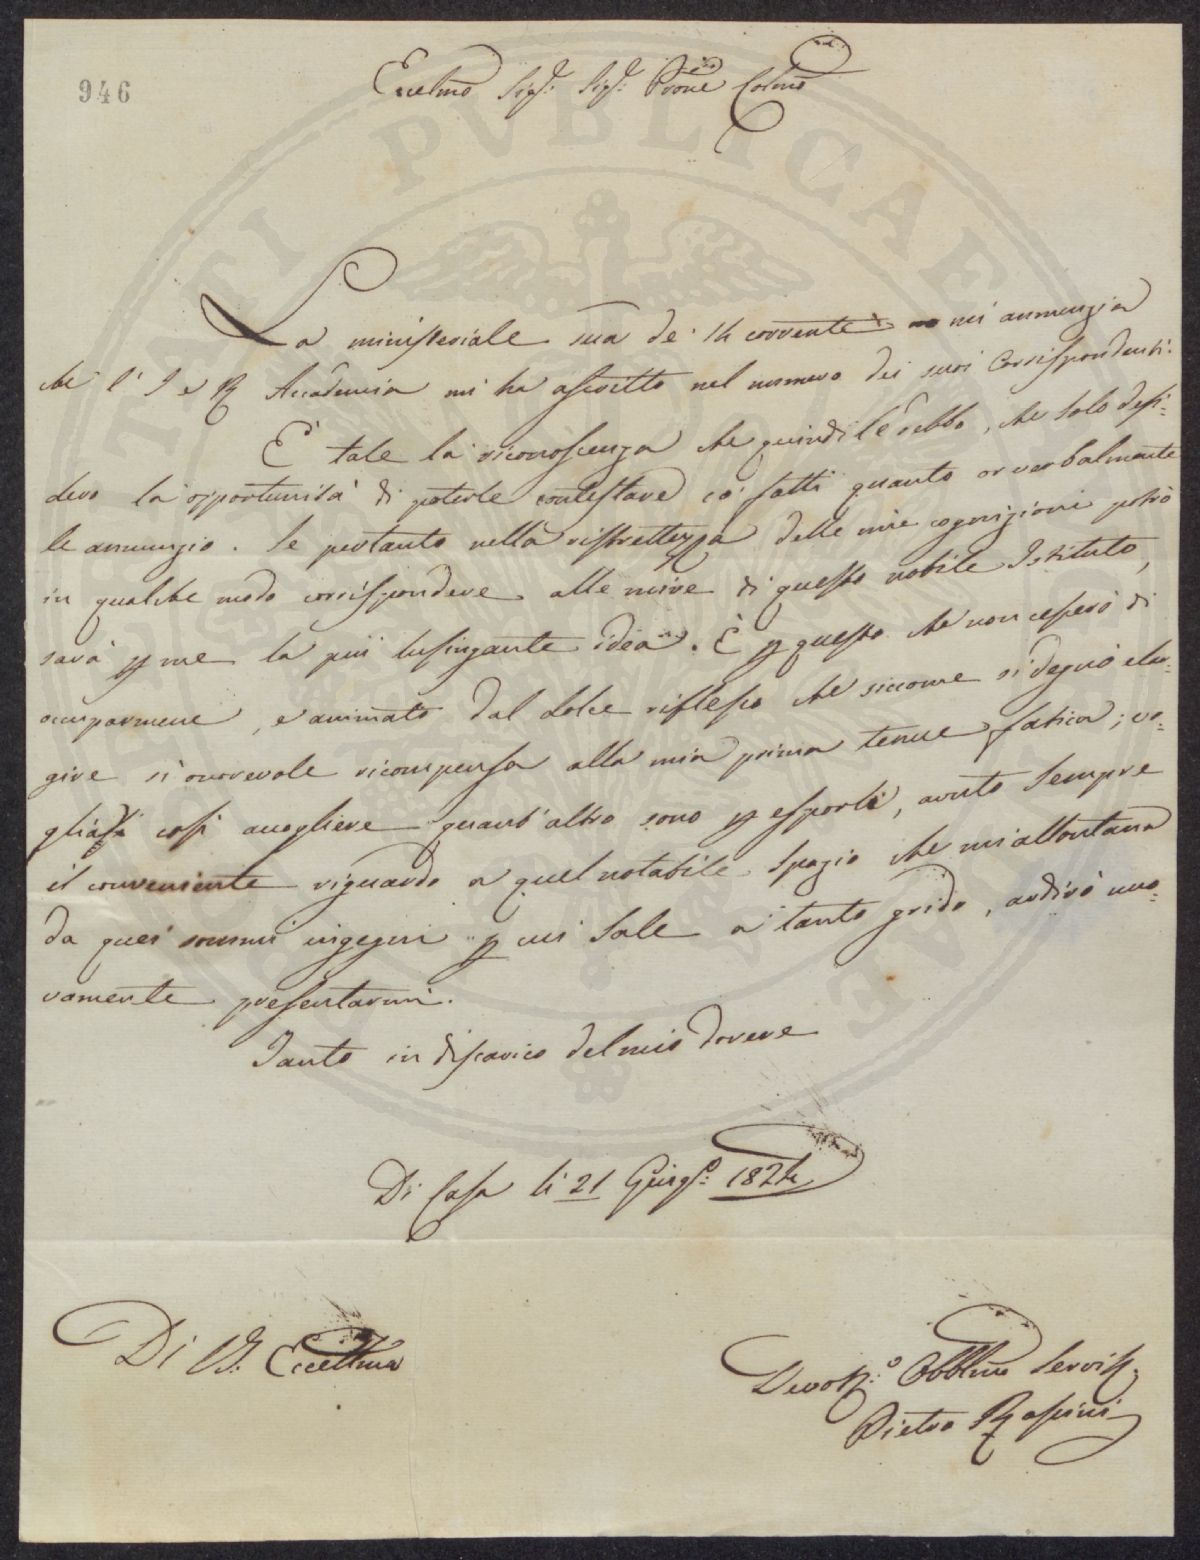 946
Ecelmo Sigr. Sigr. Prone Colmo
La ministeriale sua de' 14 corrente mi annunzia
che l' I e R Accademia mi ha ascritto nel numero dei suoi Corrispondenti.
È tale la riconoscenza che quindi le debbo, che solo desi=
dero la opportunità di poterle contestare co' fatti quanto or verbalmente
le annunzio. Se pertanto nella ristrettezza delle mie cognizioni potrò
in qualche modo corrispondere alle mire di questo nobile Istituto,
sarà p me la più lusingante idea. È p questo che non cesserò di
occuparmene, e animato dal dolce riflesso che siccome si degnò elar=
gire sì onorevole ricompensa alla mia prima tenue fatica; vo=
gliasi così accogliere quant'altro sono p esporle, avuto sempre
il conveniente riguardo a quel notabile spazio che mi allontana
da quei sommi ingegni p cui sale a tanto grido, ardirò nuo=
vamente presentarmi.
Tanto in discarico del mio dovere
Di Casa li 21 Giugo. 1824
Di V. Eccellma
Devotmo. Obblmo Servitr.
Pietro Rossini
PVBLICAE